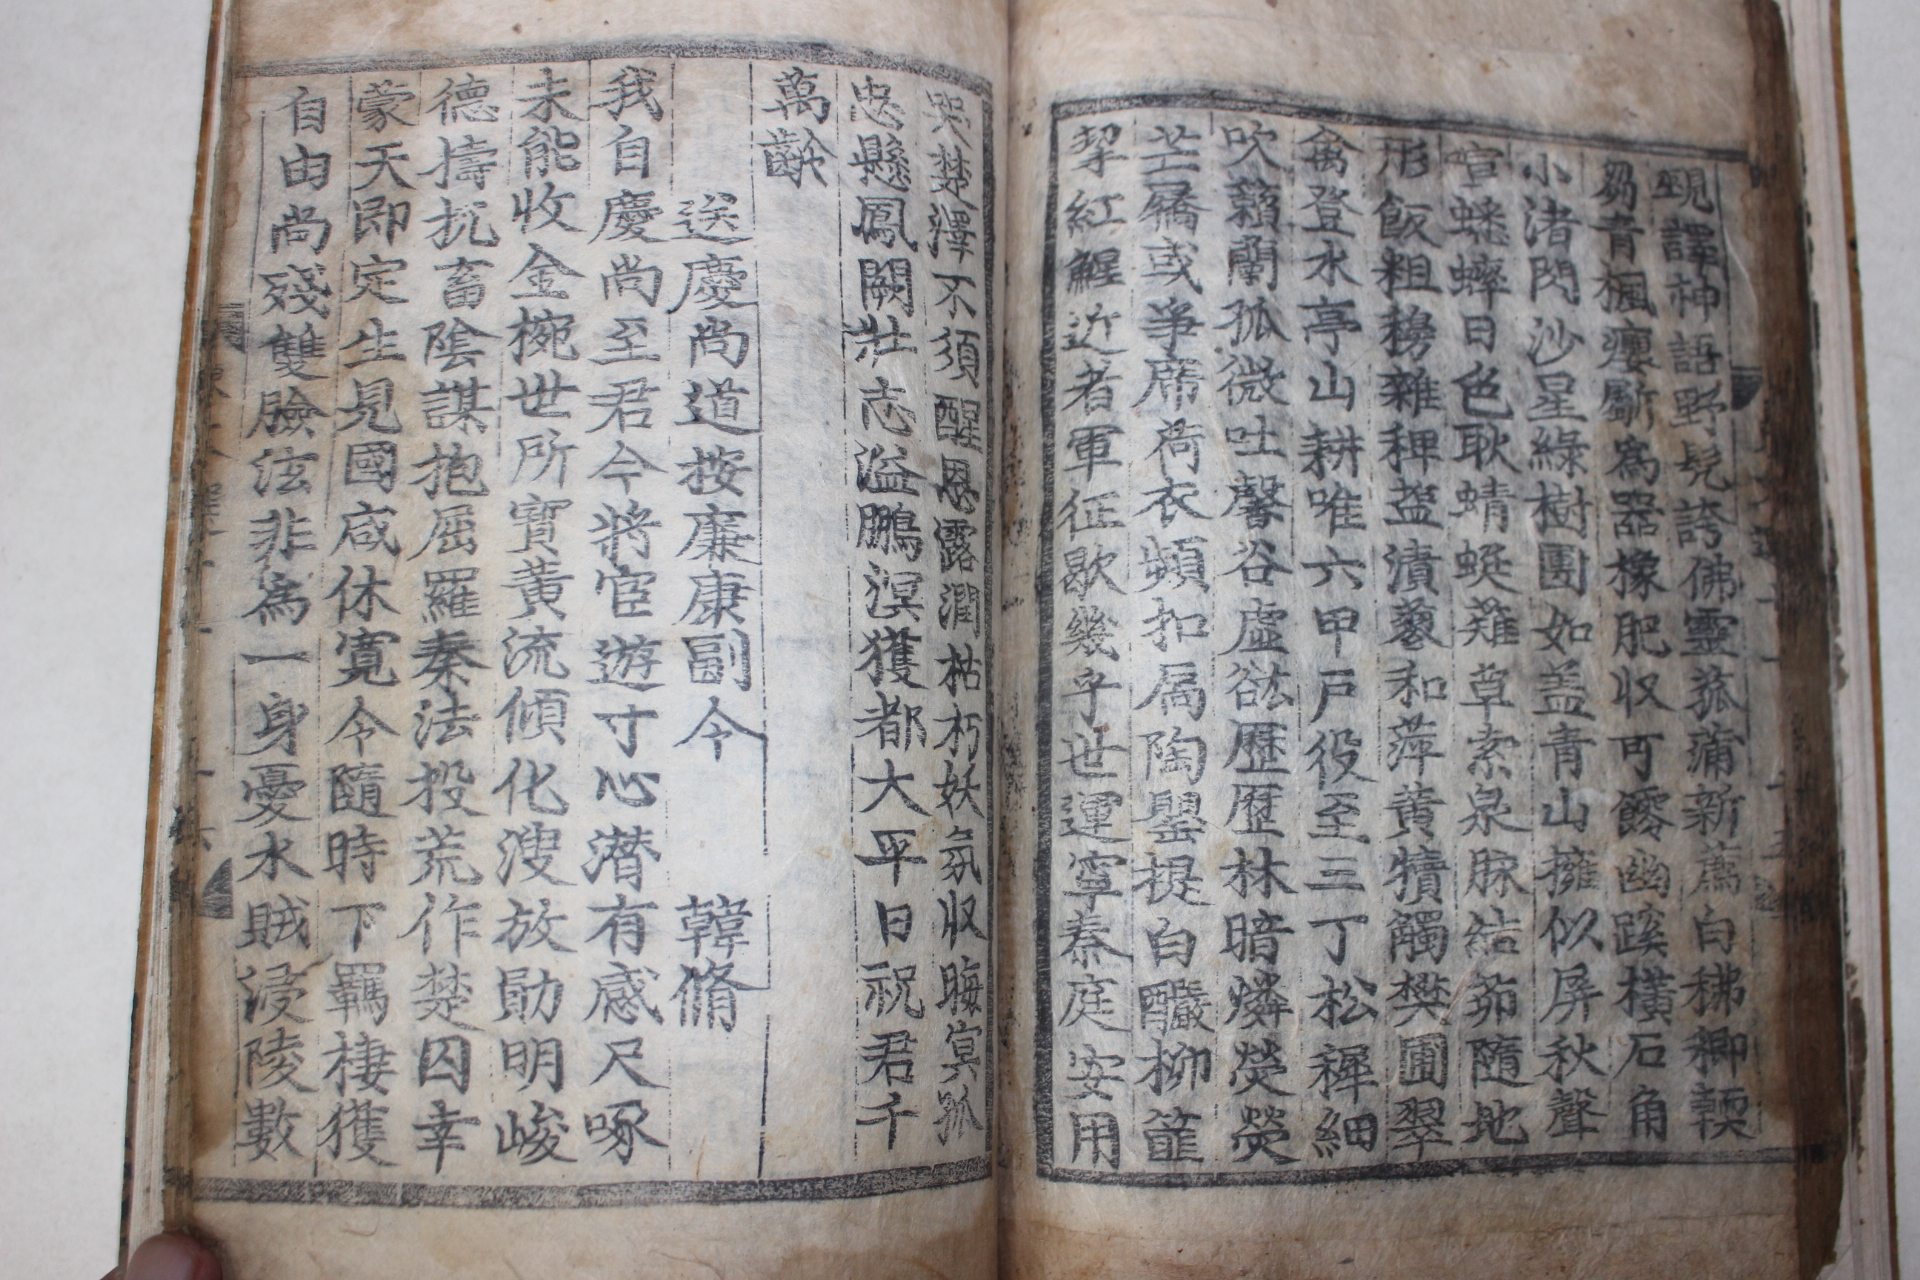 覡譯神語野髡誇佛靈菰蒲新薦白秫稬
芻青楓癭斸爲器橡肥收可霘幽蹊橫石角
小渚閃沙星綠樹團如盖青山擁似屏秋聲
喧蟋蟀日色耿蜻蜓薙草索泉脉結茆隨地
形飯粗榜雜稗虀漬蓼和萍黃犢觸樊圃翠
禽登水亭山耕唯六甲戶役至三丁松穉細
吹籟蘭孤微吐馨谷虛欲歷歷林暗燐熒熒
芒屩或爭席荷衣頻扣扃陶甖提白釅柳䈪
挈紅鯹近者軍征歇幾乎世運寧秦庭安用
哭楚澤不須醒恩露潤枯朽妖氛收晦冥孤
忠懸鳳闕壯志溢鵬溟獲都大平日祝君千
萬齡
送慶尚道按廉康副令 韓脩
我自慶尚至君今將宦遊寸心潜有感尺啄
未能收金椀世所寳黃流傾化溲放勛明峻
德擣扤畜陰謀抱屈羅秦法投荒作楚囚幸
蒙天即定生見國咸休寬令隨時下羈棲獲
自由尚殘雙臉泫非為一身憂水賊浸陵數